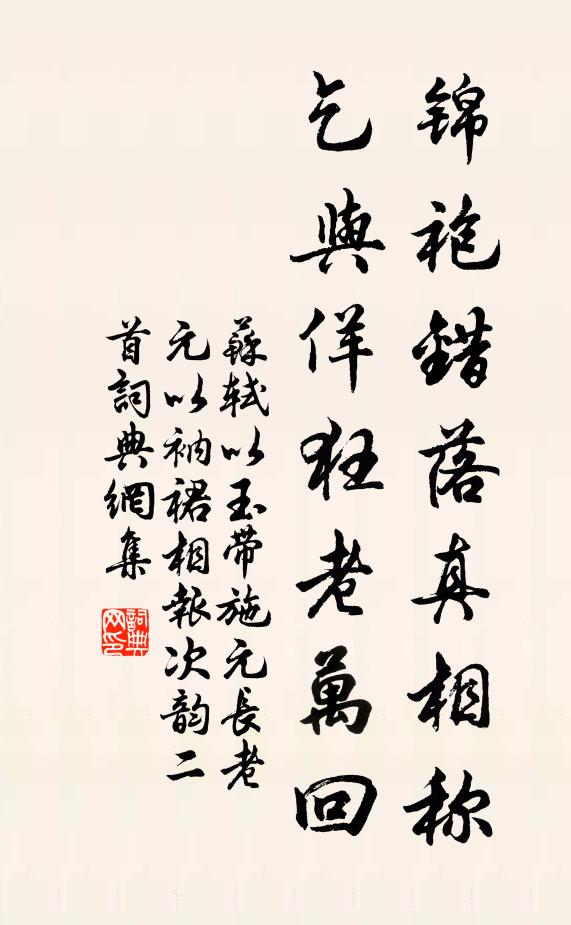 锦袍錯落真相称
乞與佯狂老萬回
蘇軾以玉帶施元長老
元以衲裙相報次韵二
首詞典網集
詞典
网印